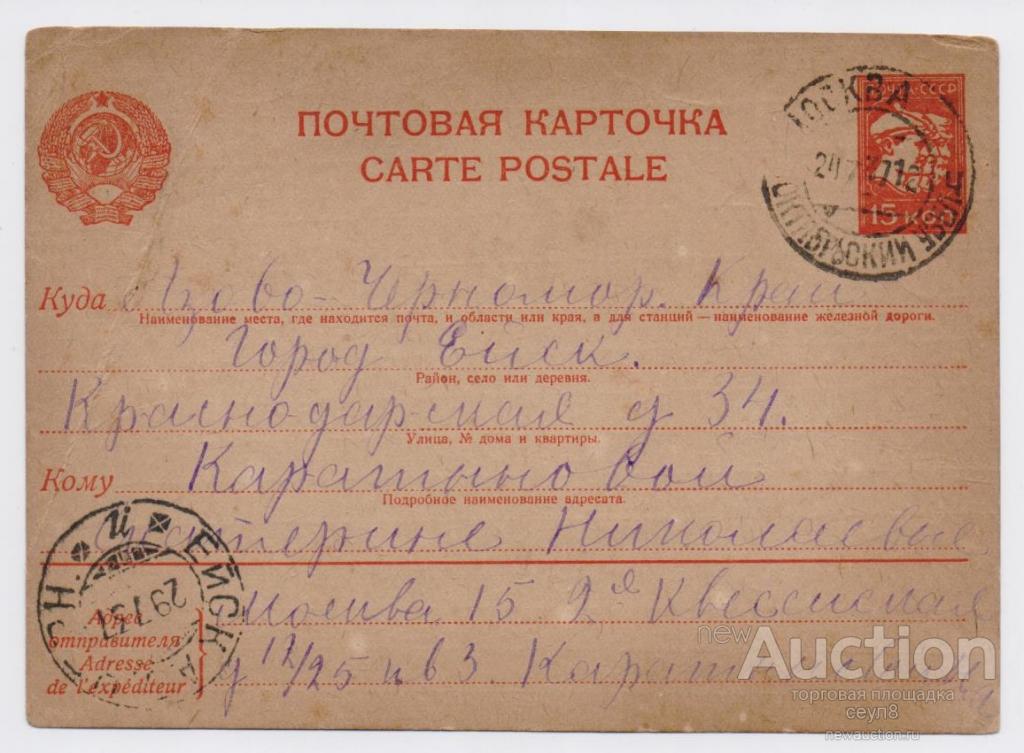 ПОЧТОВАЯ КАРТОЧКА
CARTE POSTALE
ПОЧТА·СССР
15 КОП
МОСКВА
ОКТЯБРЬСКИЙ ВОКЗ
Куда Азово-Черномор. Край
Наименование места, где находится почта, и области или края, а для станций — наименование железной дороги.
Город Ейск.
Район, село или деревня.
Краснодарская д 34.
Улица, № дома и квартиры.
Кому Каратыновой
Подробное наименование адресата.
Екатерине Николаевне
ЕЙСК
29 7 37
Адрес отправителя
Adresse de l'expéditeur
Москва 15 2я Квесисская
д 12/25 кв 3.
newAuction
торговая площадка
сеул8
newauction.ru